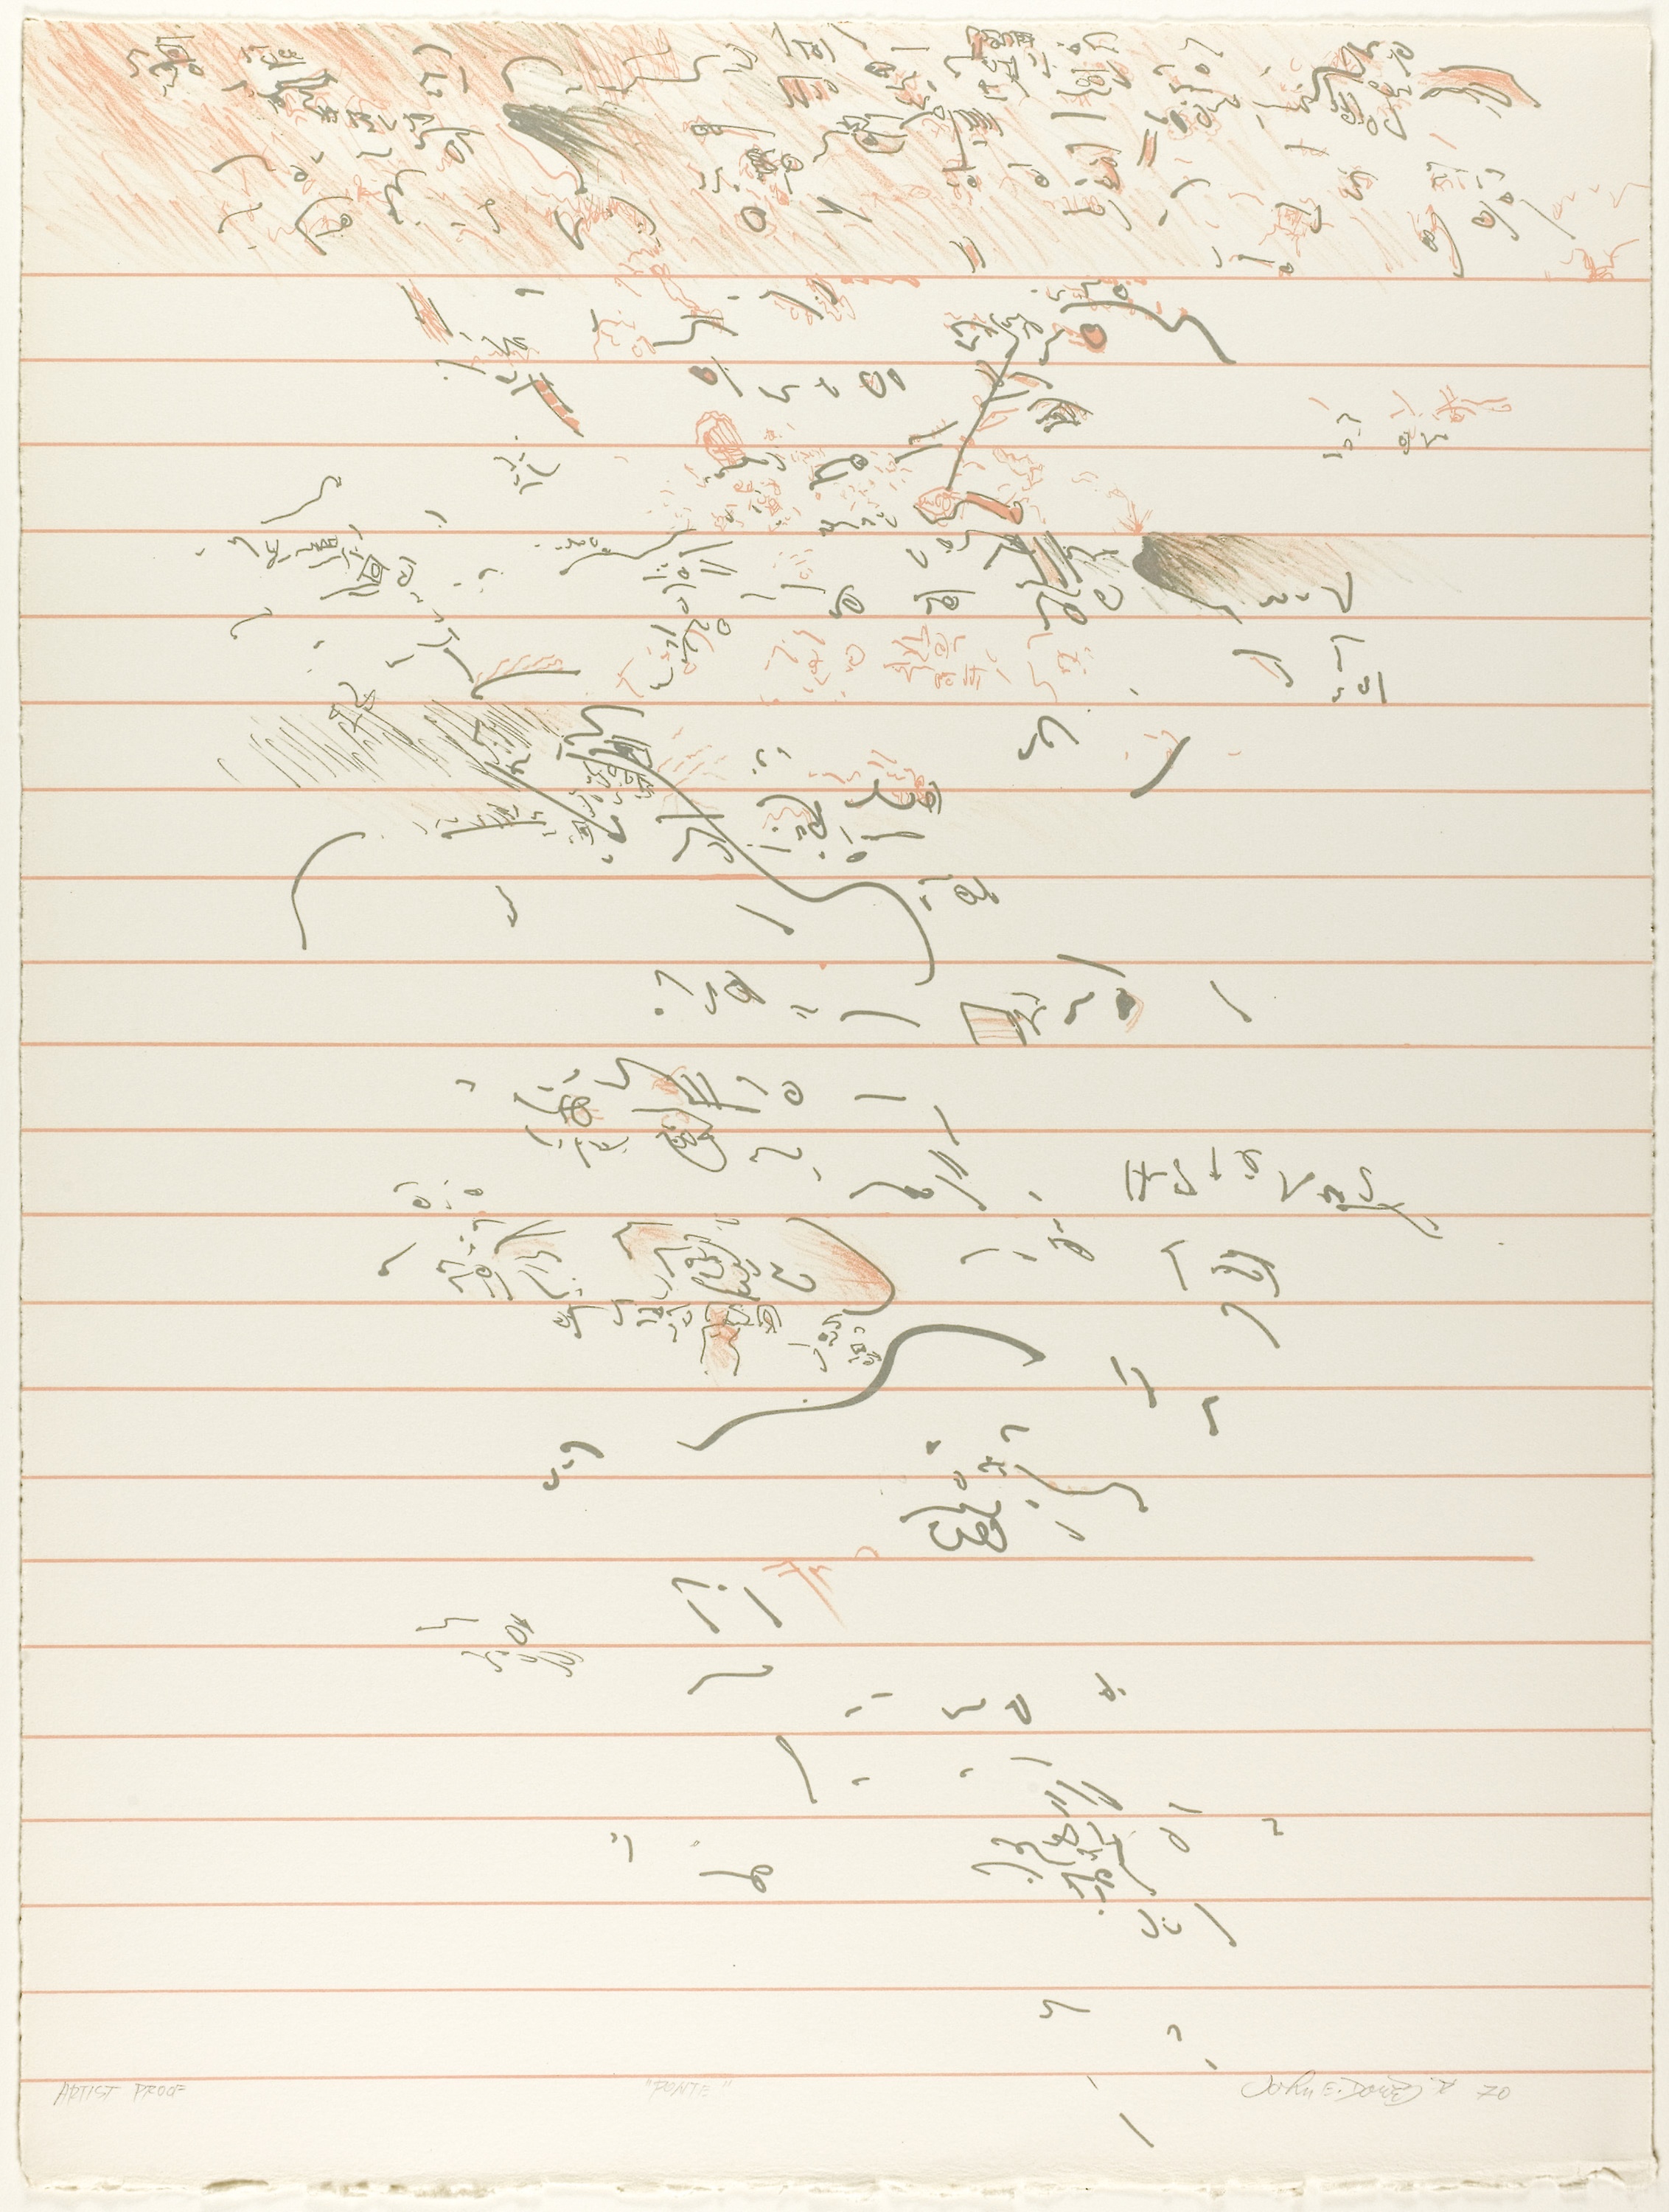 ARTIST PROOF "PONTE" John E. Dowell Jr 70